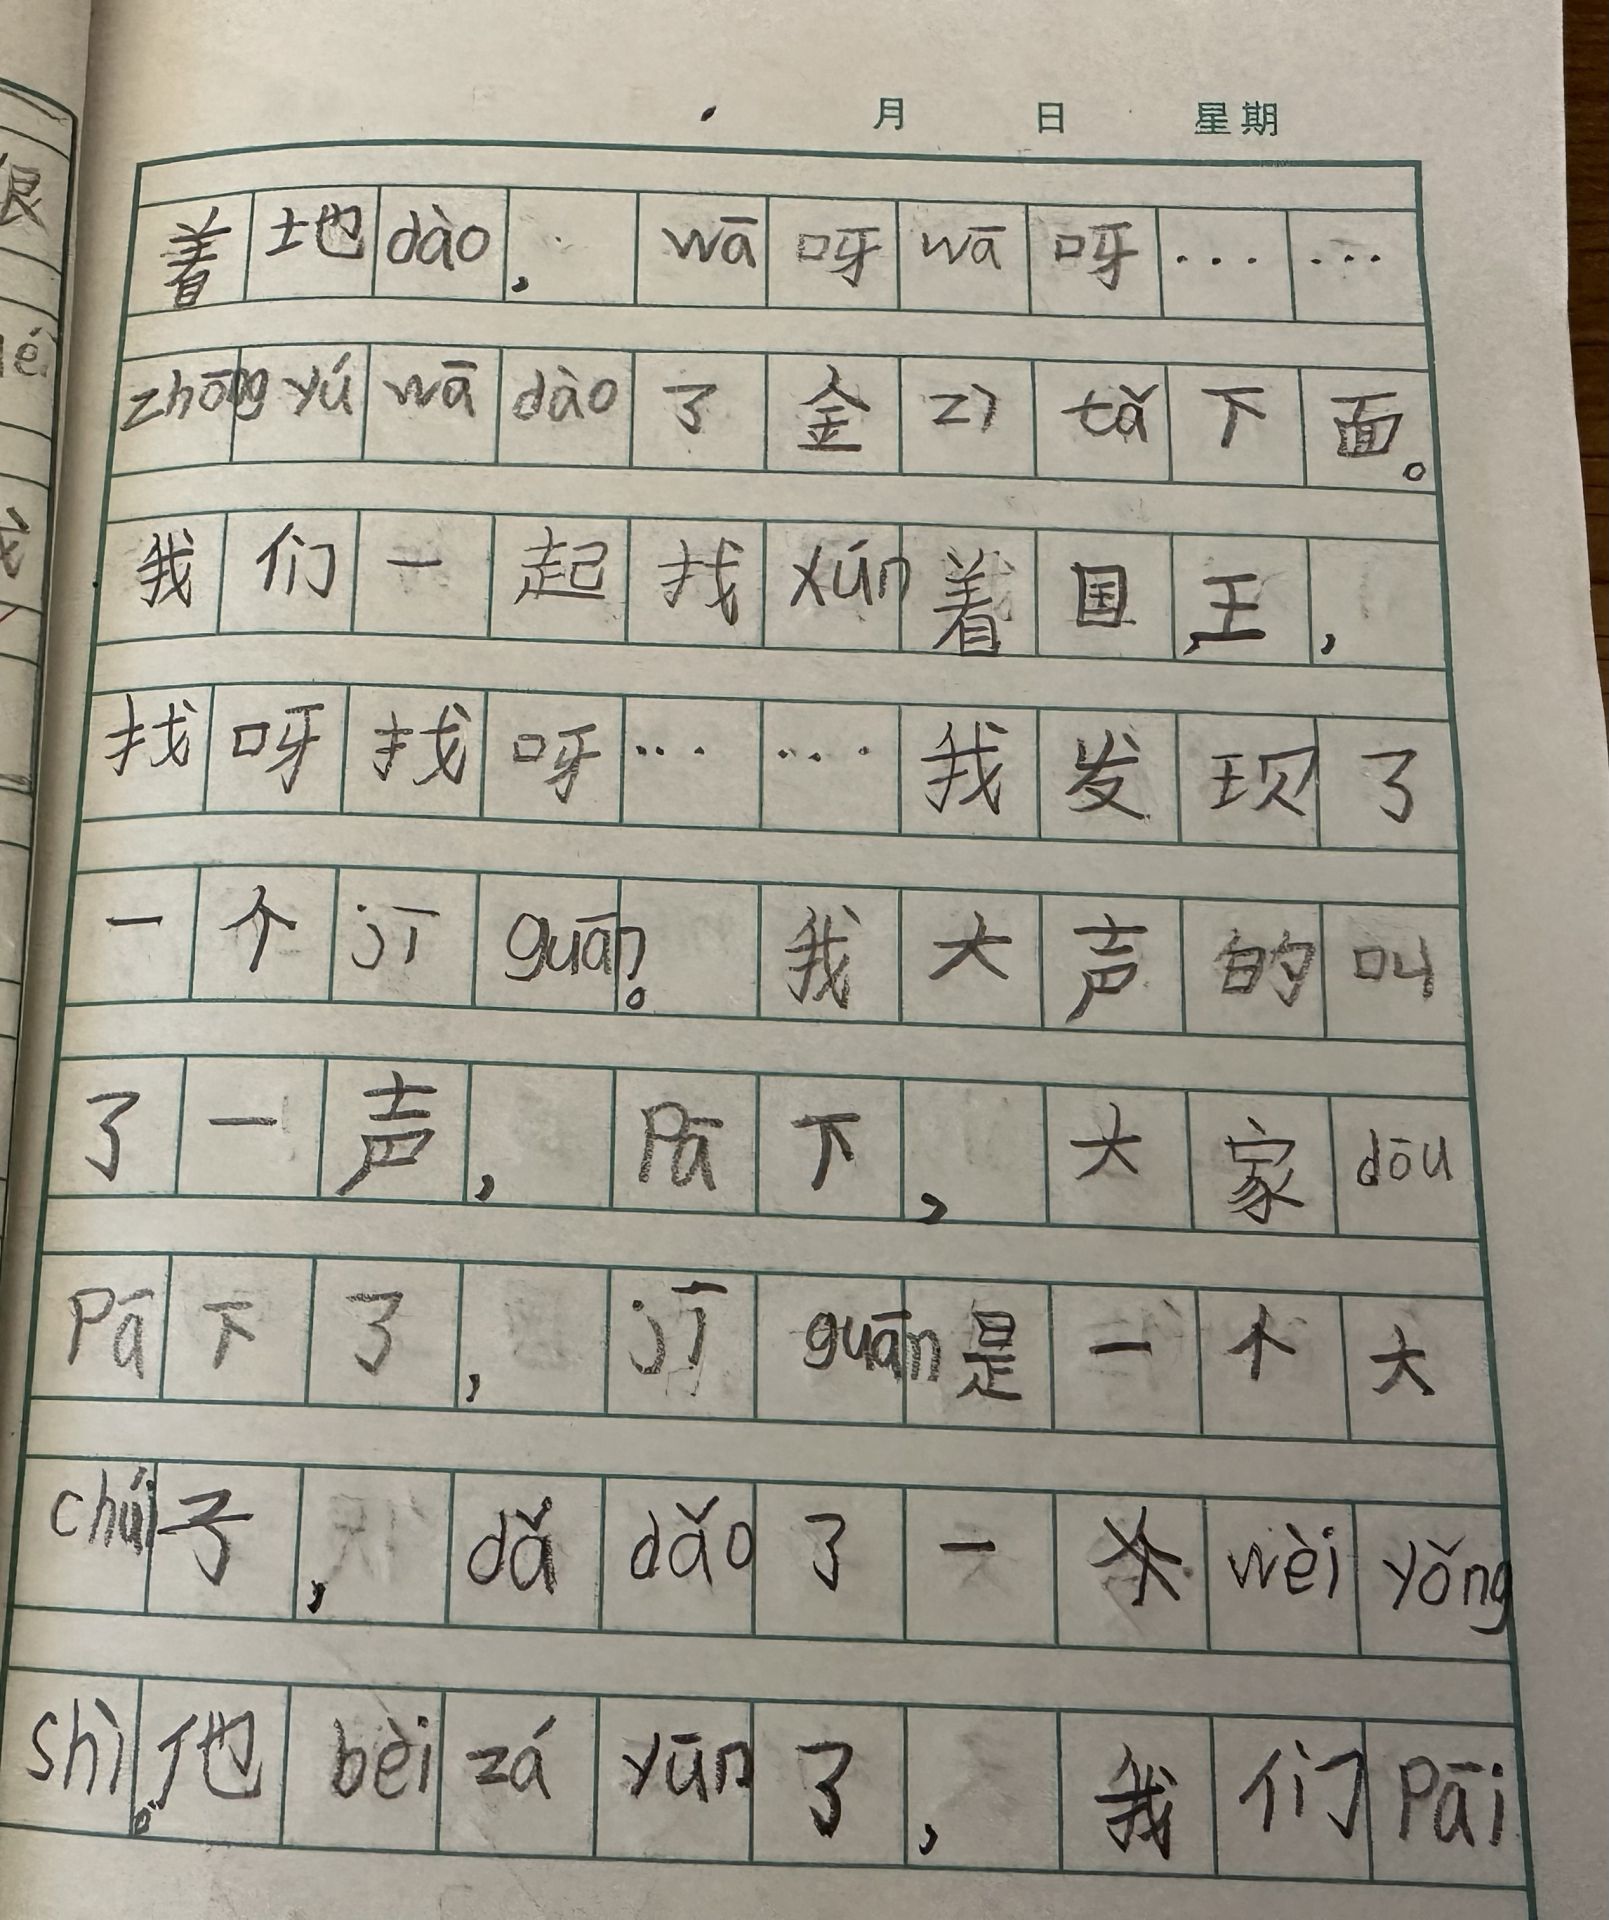 月 日 星期
着地dào，wā呀wā呀……
zhōng yú wā dào了金zì tǎ下面。
我们一起找xún着国王，
找呀找呀……我发现了
一个jī guān。我大声的叫
了一声，Pā下，大家dōu
Pā下了，jī guān是一个大
chuí子，dǎ dǎo了一 wèi yǒng
shì。他bèi zá yūn了，我们Pāi